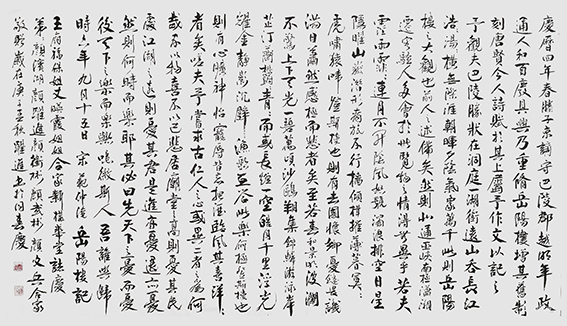 慶曆四年春滕子京謫守巴陵郡越明年政
通人和百廢具興乃重脩岳陽樓增其舊制
刻唐賢今人詩賦於其上屬予作文以記之
予觀夫巴陵勝狀在洞庭一湖銜遠山吞長江
浩浩湯湯橫無際涯朝暉夕陰氣象萬千此則岳陽
樓之大觀也前人之述備矣然則北通巫峽南極瀟湘
遷客騷人多會於此覽物之情得無異乎若夫
霪雨霏霏連月不開陰風怒號濁浪排空日星
隱曜山岳潛形商旅不行檣傾楫摧薄暮冥冥
虎嘯猿啼登斯樓也則有去國懷鄉憂讒畏譏
滿目蕭然感極而悲者矣至若春和景明波瀾
不驚上下天光一碧萬頃沙鷗翔集錦鱗游泳岸
芷汀蘭郁郁青青而或長煙一空皓月千里浮光
躍金靜影沉璧漁歌互答此樂何極登斯樓也
則有心曠神怡寵辱皆忘把酒臨風其喜洋洋
者矣嗟夫予嘗求古仁人之心或異二者之為何
哉不以物喜不以己悲居廟堂之高則憂其民
處江湖之遠則憂其君是進亦憂退亦憂
然則何時而樂耶其必曰先天下之憂而憂
後天下之樂而樂乎噫微斯人吾誰與歸
時六年九月十五日 宋范仲淹 岳陽樓記
王府福姐丈霞姐姐合家新樓華堂誌慶
弟顏漢湖顏躍進顏衛彬顏武彬顏文兵合家
敬賀歲在庚子孟秋躍進書於何喜慶